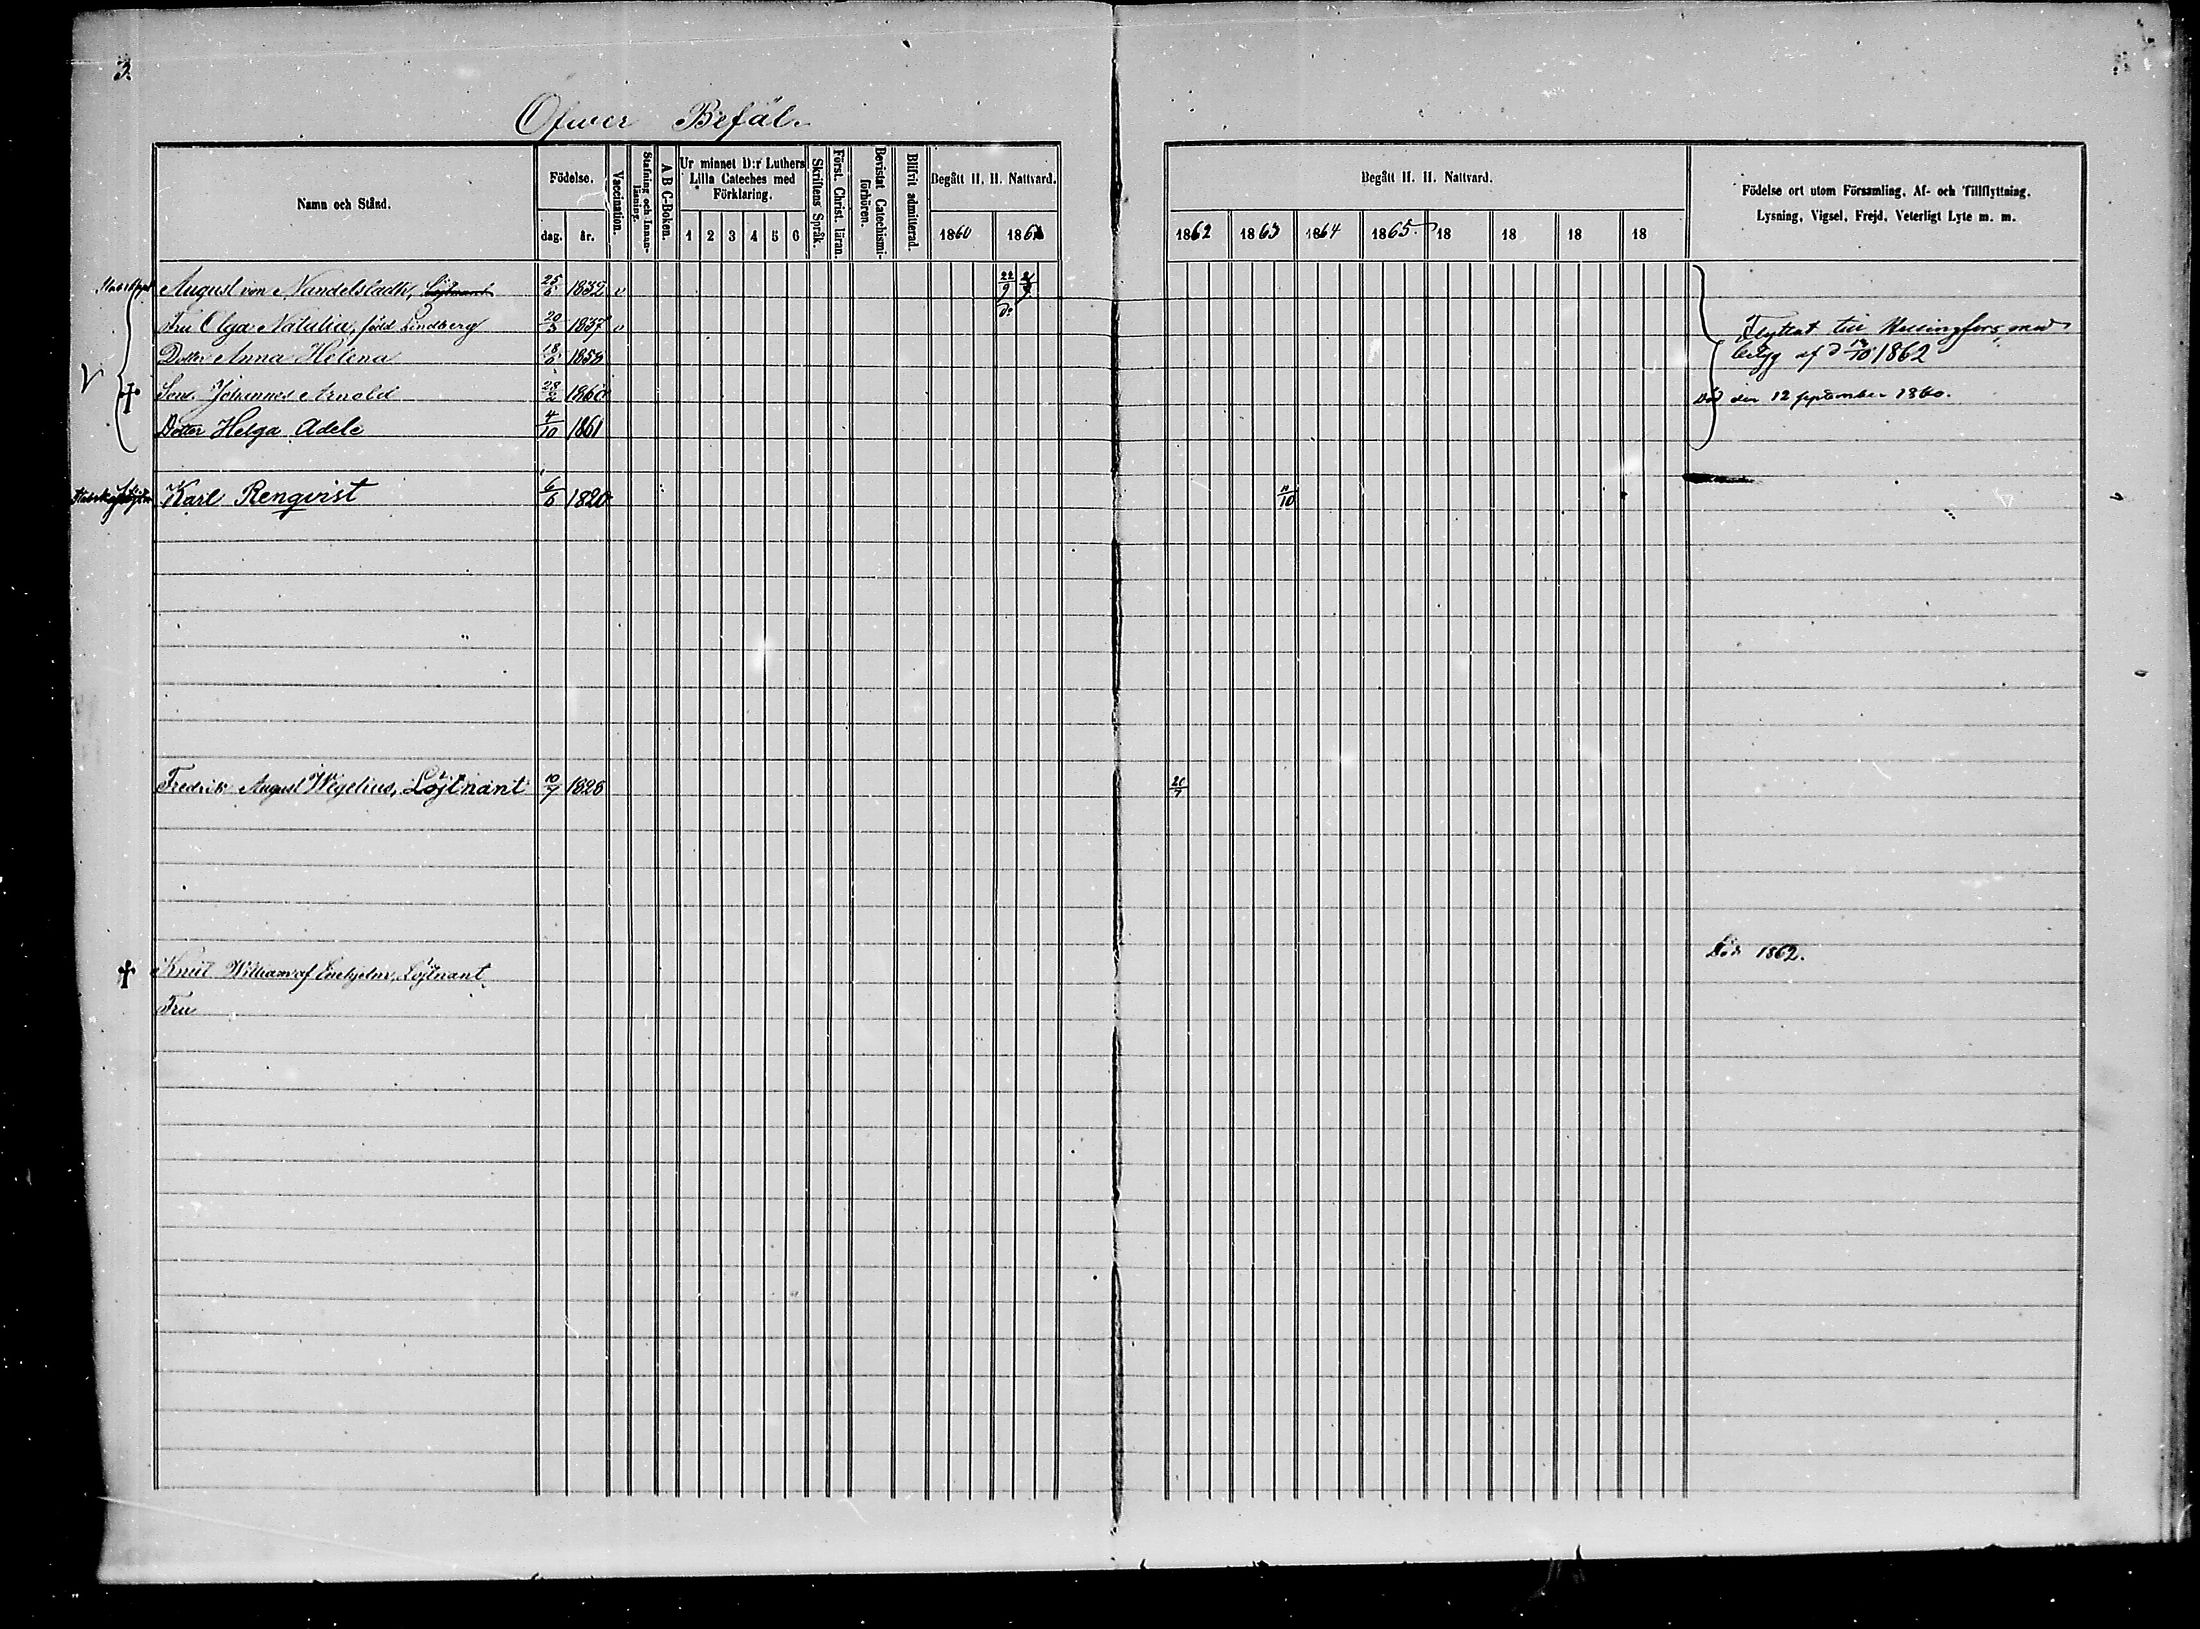 3.
Ofver Befäl.
Namn och Stånd.
Födelse.
dag. år.
Vaccination.
Stafning och Innanläsning.
A B C-Boken.
Ur minnet D:r Luthers
Lilla Cateches med
Förklaring.
1 2 3 4 5 6
Skriftens Språk.
Först. Christ. läran.
Bevistat Catechismi-förhören.
Blifvit admitterad.
Begått H. H. Nattvard.
1860 1861
Begått H. H. Nattvard.
1862 1863 1864 1865. 18 18 18 18
Födelse ort utom Församling, Af- och Tillflyttning.
Lysning, Vigsel, Frejd, Veterligt Lyte m. m.
August von Nandelstadh, Löjtnant 25/6 1832 v 22/9
Fru Olga Natalia, född Lindberg 20/3 1837 v do
Flyttat till Helsingfors med
Dotter Anna Helena 18/6 1858
betyg af d 1862
Son Johannes Arnold 28/2 1860 Död den 12 september 1860.
Dotter Helga Adele 4/10 1861
Karl Renqvist 6/6 1820 11/10
Fredrik August Wigelius, Löjtnant 10/7 1828
Knut William af Enehjelm, Löjtnant Död 1862.
Fru